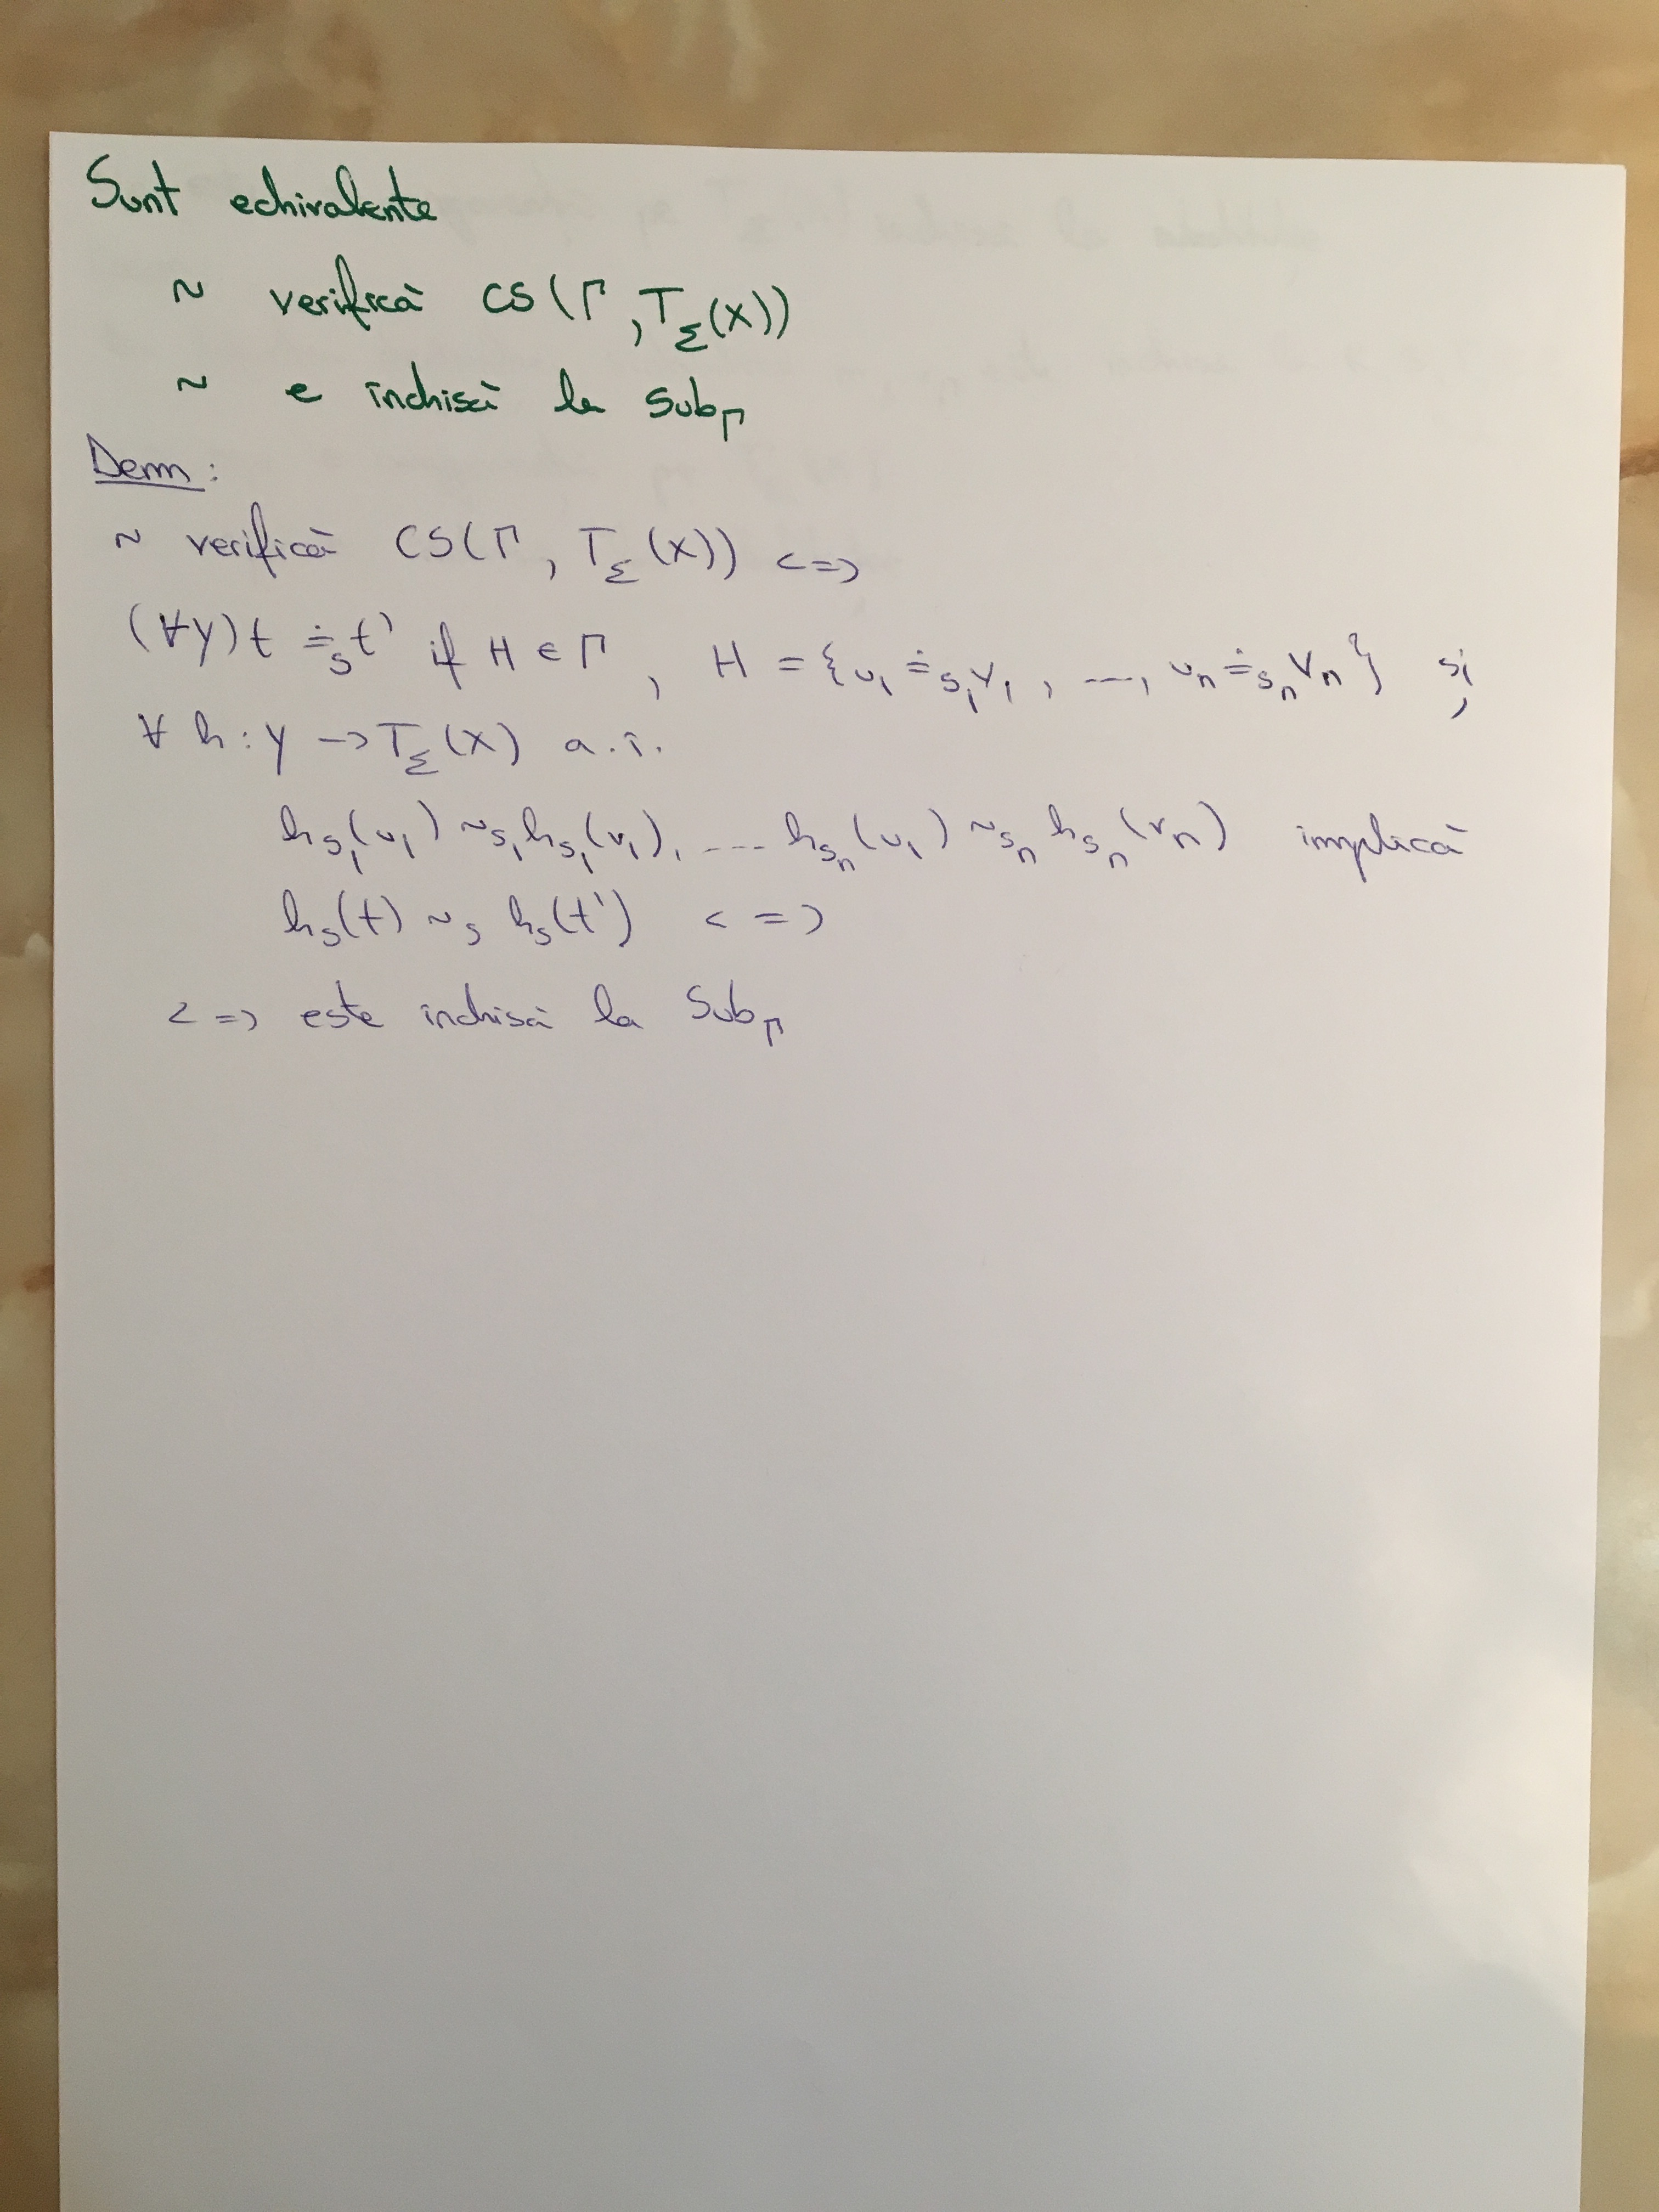 Sunt echivalente
~ verifică CS(Γ, T_Σ(X))
~ e închisă la Sub_Γ
Dem:
~ verifică CS(Γ, T_Σ(X)) <=>
(∀Y) t ≐_s t' if H ∈ Γ, H = {u_1 ≐_{s_1} v_1, ..., u_n ≐_{s_n} v_n} și
∀ h: Y -> T_Σ(X) a.î.
h_{s_1}(u_1) ~_{s_1} h_{s_1}(v_1), ... h_{s_n}(u_1) ~_{s_n} h_{s_n}(v_n) implică
h_s(t) ~_s h_s(t') <=>
<=> este închisă la Sub_Γ